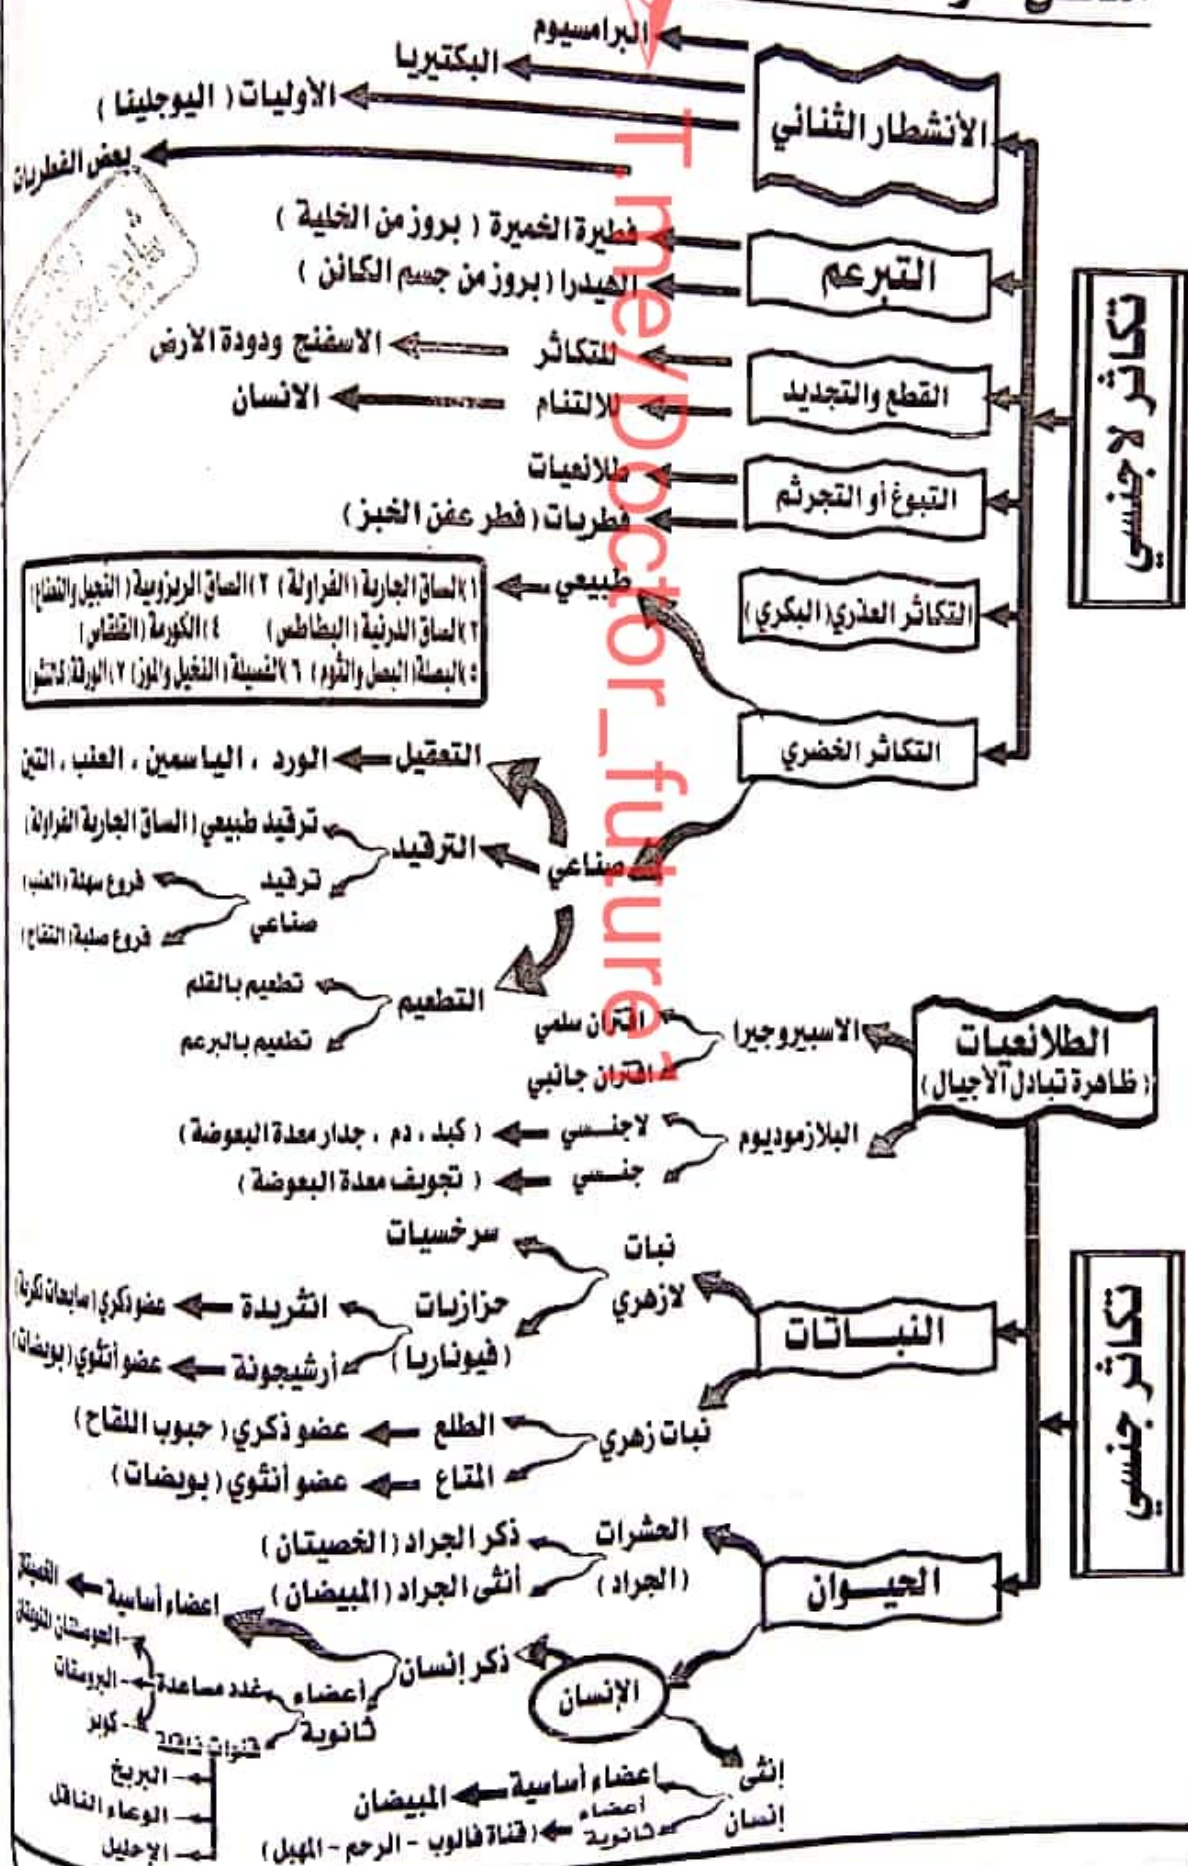 تكاثر لاجنسي
الأنشطار الثنائي
البرامسيوم
البكتيريا
الأوليات (اليوجلينا)
بعض الفطريات
التبرعم
فطيرة الخميرة (بروز من الخلية)
الهيدرا (بروز من جسم الكائن)
القطع والتجديد
للتكاثر
الاسفنج ودودة الأرض
للالتنام
الانسان
التبوغ أو التجرثم
طلائعيات
فطريات (فطر عفن الخبز)
التكاثر العذري (البكري)
التكاثر الخضري
طبيعي
١) الساق الجارية (الفراولة) ٢) الساق الريزومية (النجيل والنعناع)
٣) الساق الدرنية (البطاطس) ٤) الكورمة (القلقاس)
٥) البصلة (البصل والثوم) ٦) الفسيلة (النخيل والموز) ٧) الورقة
صناعي
التعقيل
الورد ، الياسمين ، العنب ، التين
الترقيد
ترقيد طبيعي (الساق الجارية الفراولة)
ترقيد صناعي
فروع سهلة (العنب)
فروع صلبة (التفاح)
التطعيم
تطعيم بالقلم
تطعيم بالبرعم
تكاثر جنسي
الطلائعيات
(ظاهرة تبادل الأجيال)
الاسبيروجيرا
اقتران سلمي
اقتران جانبي
البلازموديوم
لاجنسي
(كبد ، دم ، جدار معدة البعوضة)
جنسي
(تجويف معدة البعوضة)
النباتات
نبات
لازهري
سرخسيات
حزازيات
(فيوناريا)
انثريدة
عضو ذكري (سابحات ذكرية)
أرشيجونة
عضو أنثوي (بويضات)
نبات زهري
الطلع
عضو ذكري (حبوب اللقاح)
المتاع
عضو أنثوي (بويضات)
الحيوان
الحشرات
(الجراد)
ذكر الجراد (الخصيتان)
أنثى الجراد (المبيضان)
الإنسان
ذكر إنسان
اعضاء أساسية
الخصيتان
أعضاء
ثانوية
غدد مساعدة
الحوصلتان المنويتان
البروستات
كوبر
قنوات ناقلة
البربخ
الوعاء الناقل
الإحليل
إنثى
إنسان
اعضاء أساسية
المبيضان
أعضاء
ثانوية
(قناة فالوب - الرحم - المهبل)
T.me/Doctor_future1